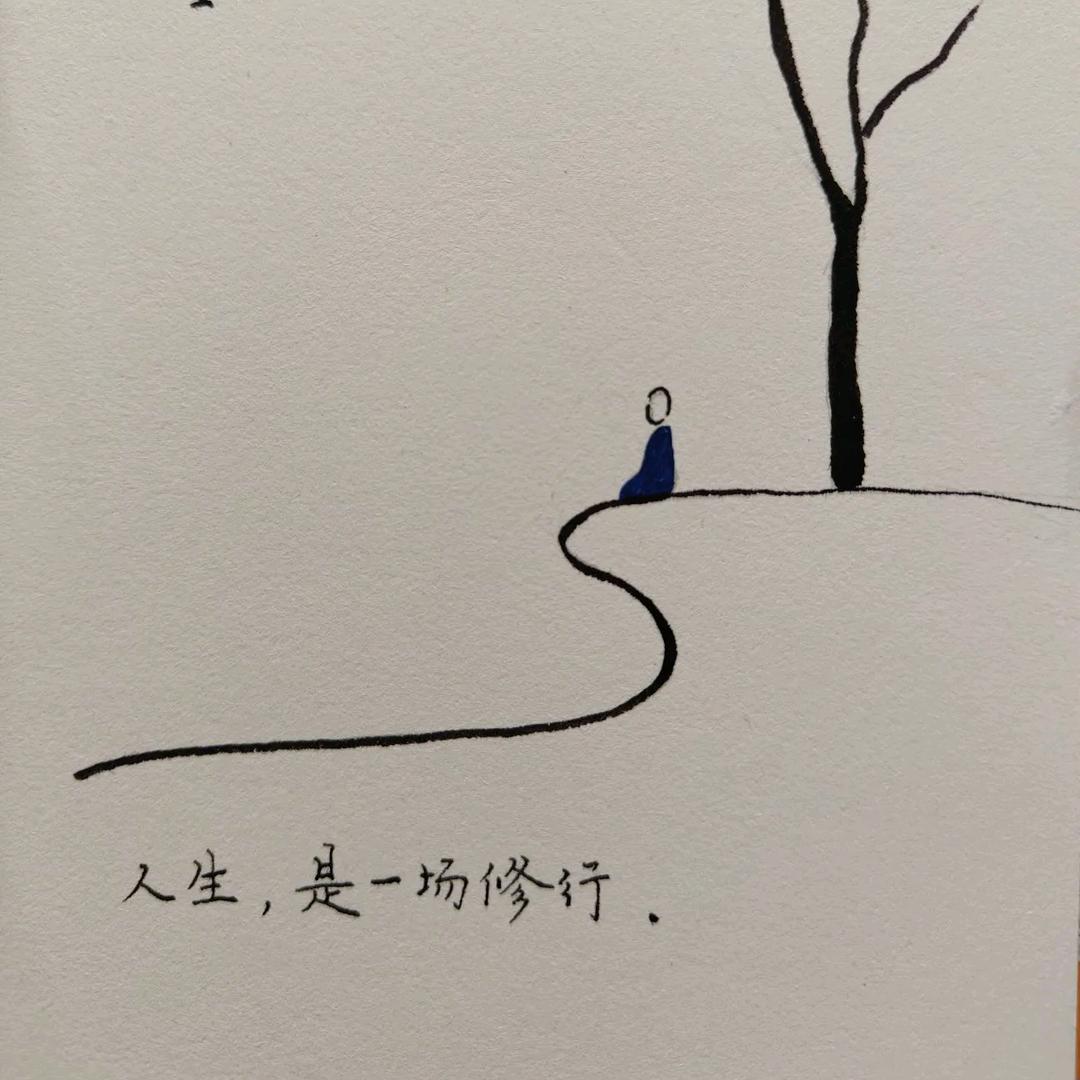 人生,是一场修行.